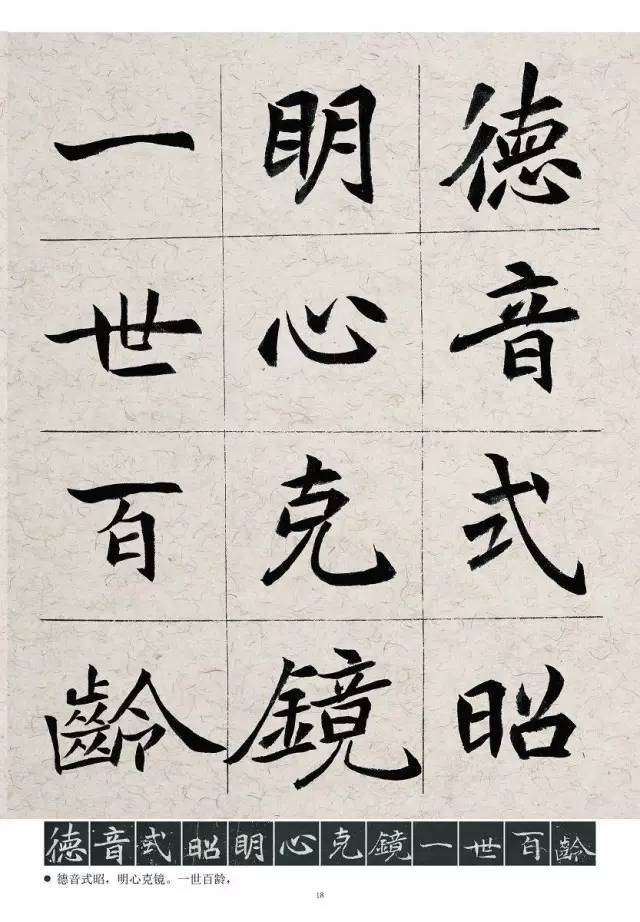 德音式昭
明心克鏡
一世百齡
德音式昭明心克鏡一世百齡
● 德音式昭，明心克镜。一世百龄，
18